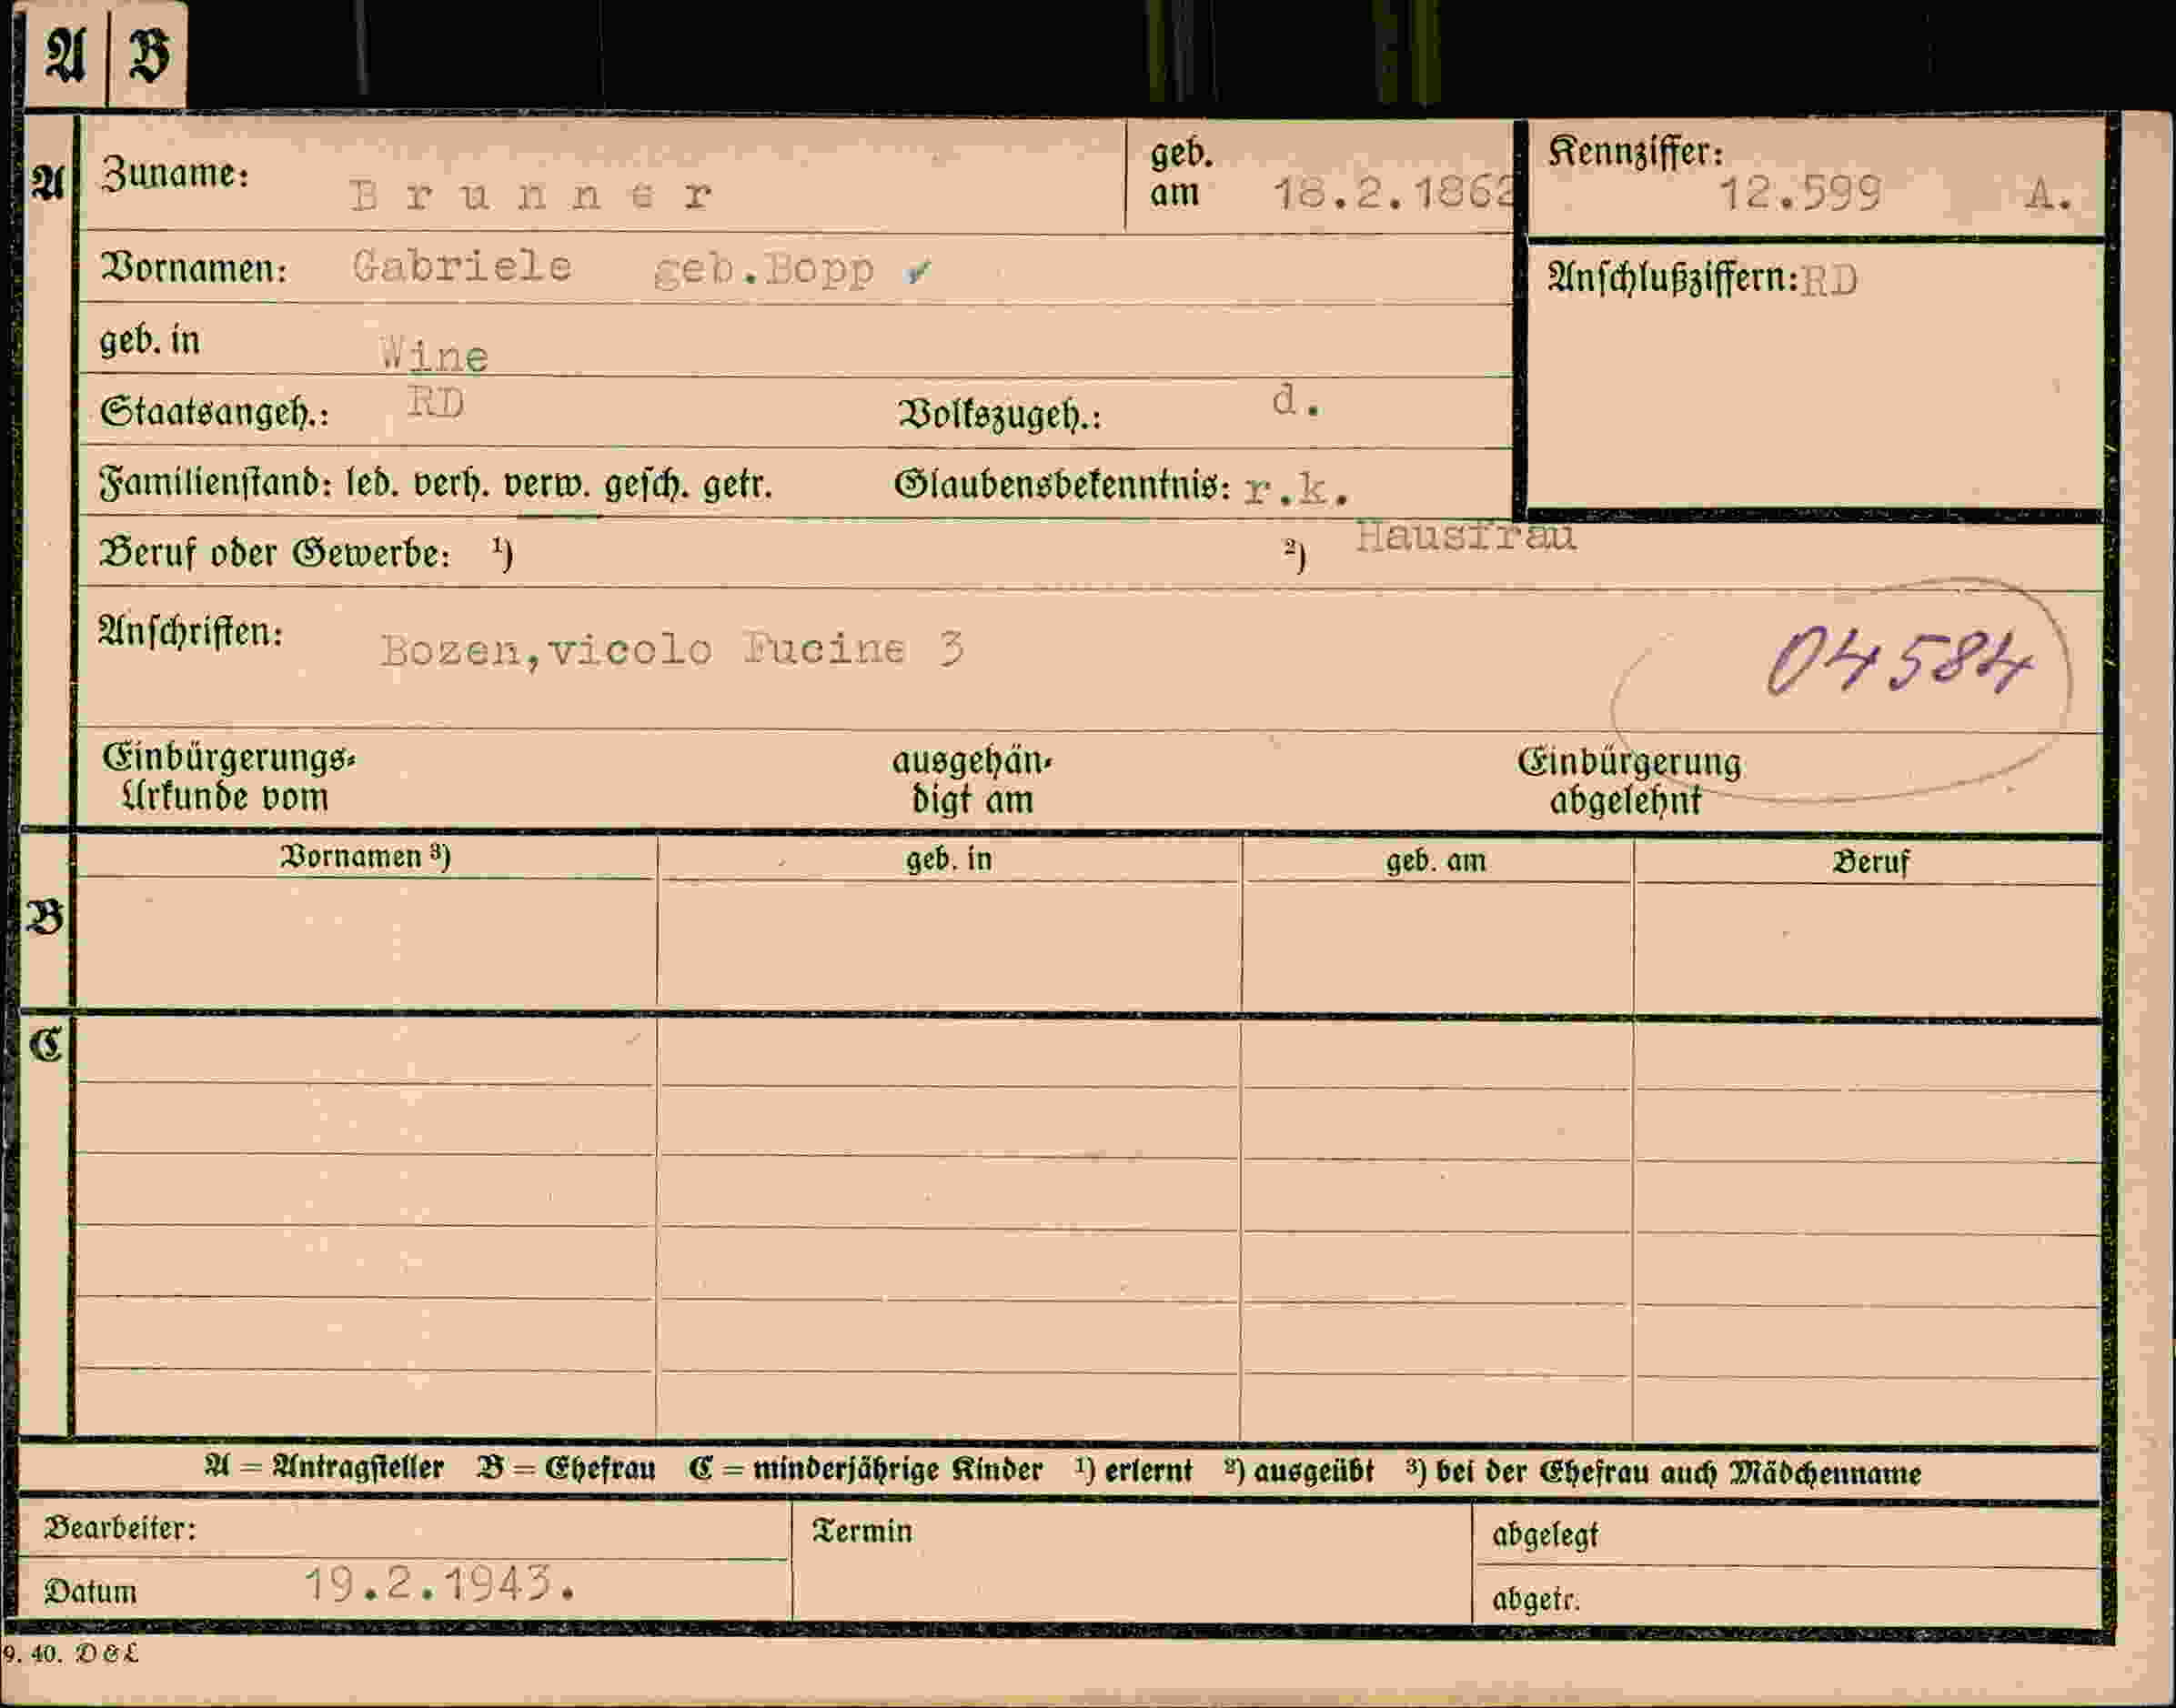 A B
A
Zuname: Brunner geb. am 18.2.1862 Kennziffer: 12.599 A.
Vornamen: Gabriele geb.Bopp Anschlußziffern: RD
geb. in Wine
Staatsangeh.: RD Volkszugeh.: d.
Familienstand: led. verh. verw. gesch. getr. Glaubensbekenntnis: r.k.
Beruf oder Gewerbe: ¹) ²) Hausfrau
Anschriften: Bozen,vicolo Fucine 3 04584
Einbürgerungs- ausgehän- Einbürgerung
Urkunde vom digt am abgelehnt
Vornamen ³) geb. in geb. am Beruf
B
C
A = Antragsteller B = Ehefrau C = minderjährige Kinder ¹) erlernt ²) ausgeübt ³) bei der Ehefrau auch Mädchenname
Bearbeiter: Termin abgelegt
Datum 19.2.1943. abgetr.
9. 40. D & L